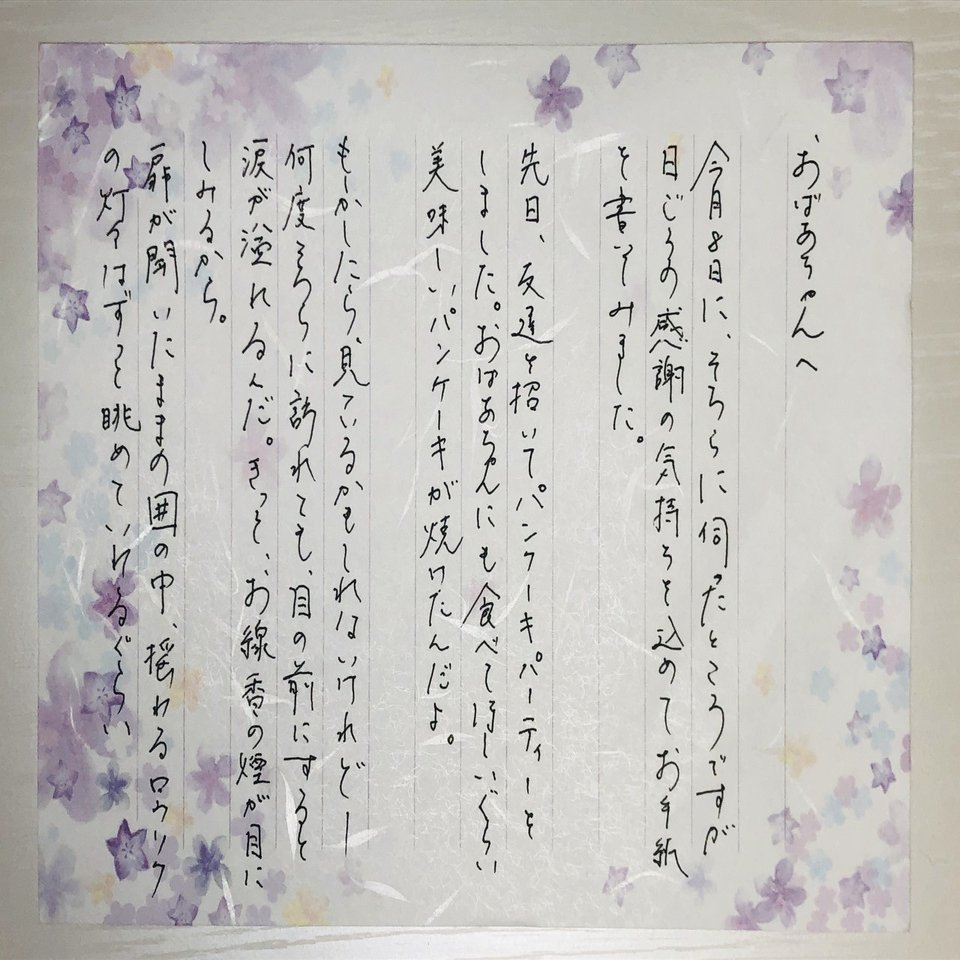 おばあちゃんへ
今月8日に、そちらに伺ったところですが
日ごろの感謝の気持ちを込めてお手紙
を書いてみました。
先日、友達を招いてパンケーキパーティーを
しました。おばあちゃんにも食べてほしいぐらい
美味しいパンケーキが焼けたんだよ。
もしかしたら、見ているかもしれないけれどー
何度そちらに訪れても、目の前にすると
涙が溢れるんだ。きっと、お線香の煙が目に
しみるから。
扉が開いたままの囲の中、揺れるロウソク
の灯りはずっと眺めていけるぐらい